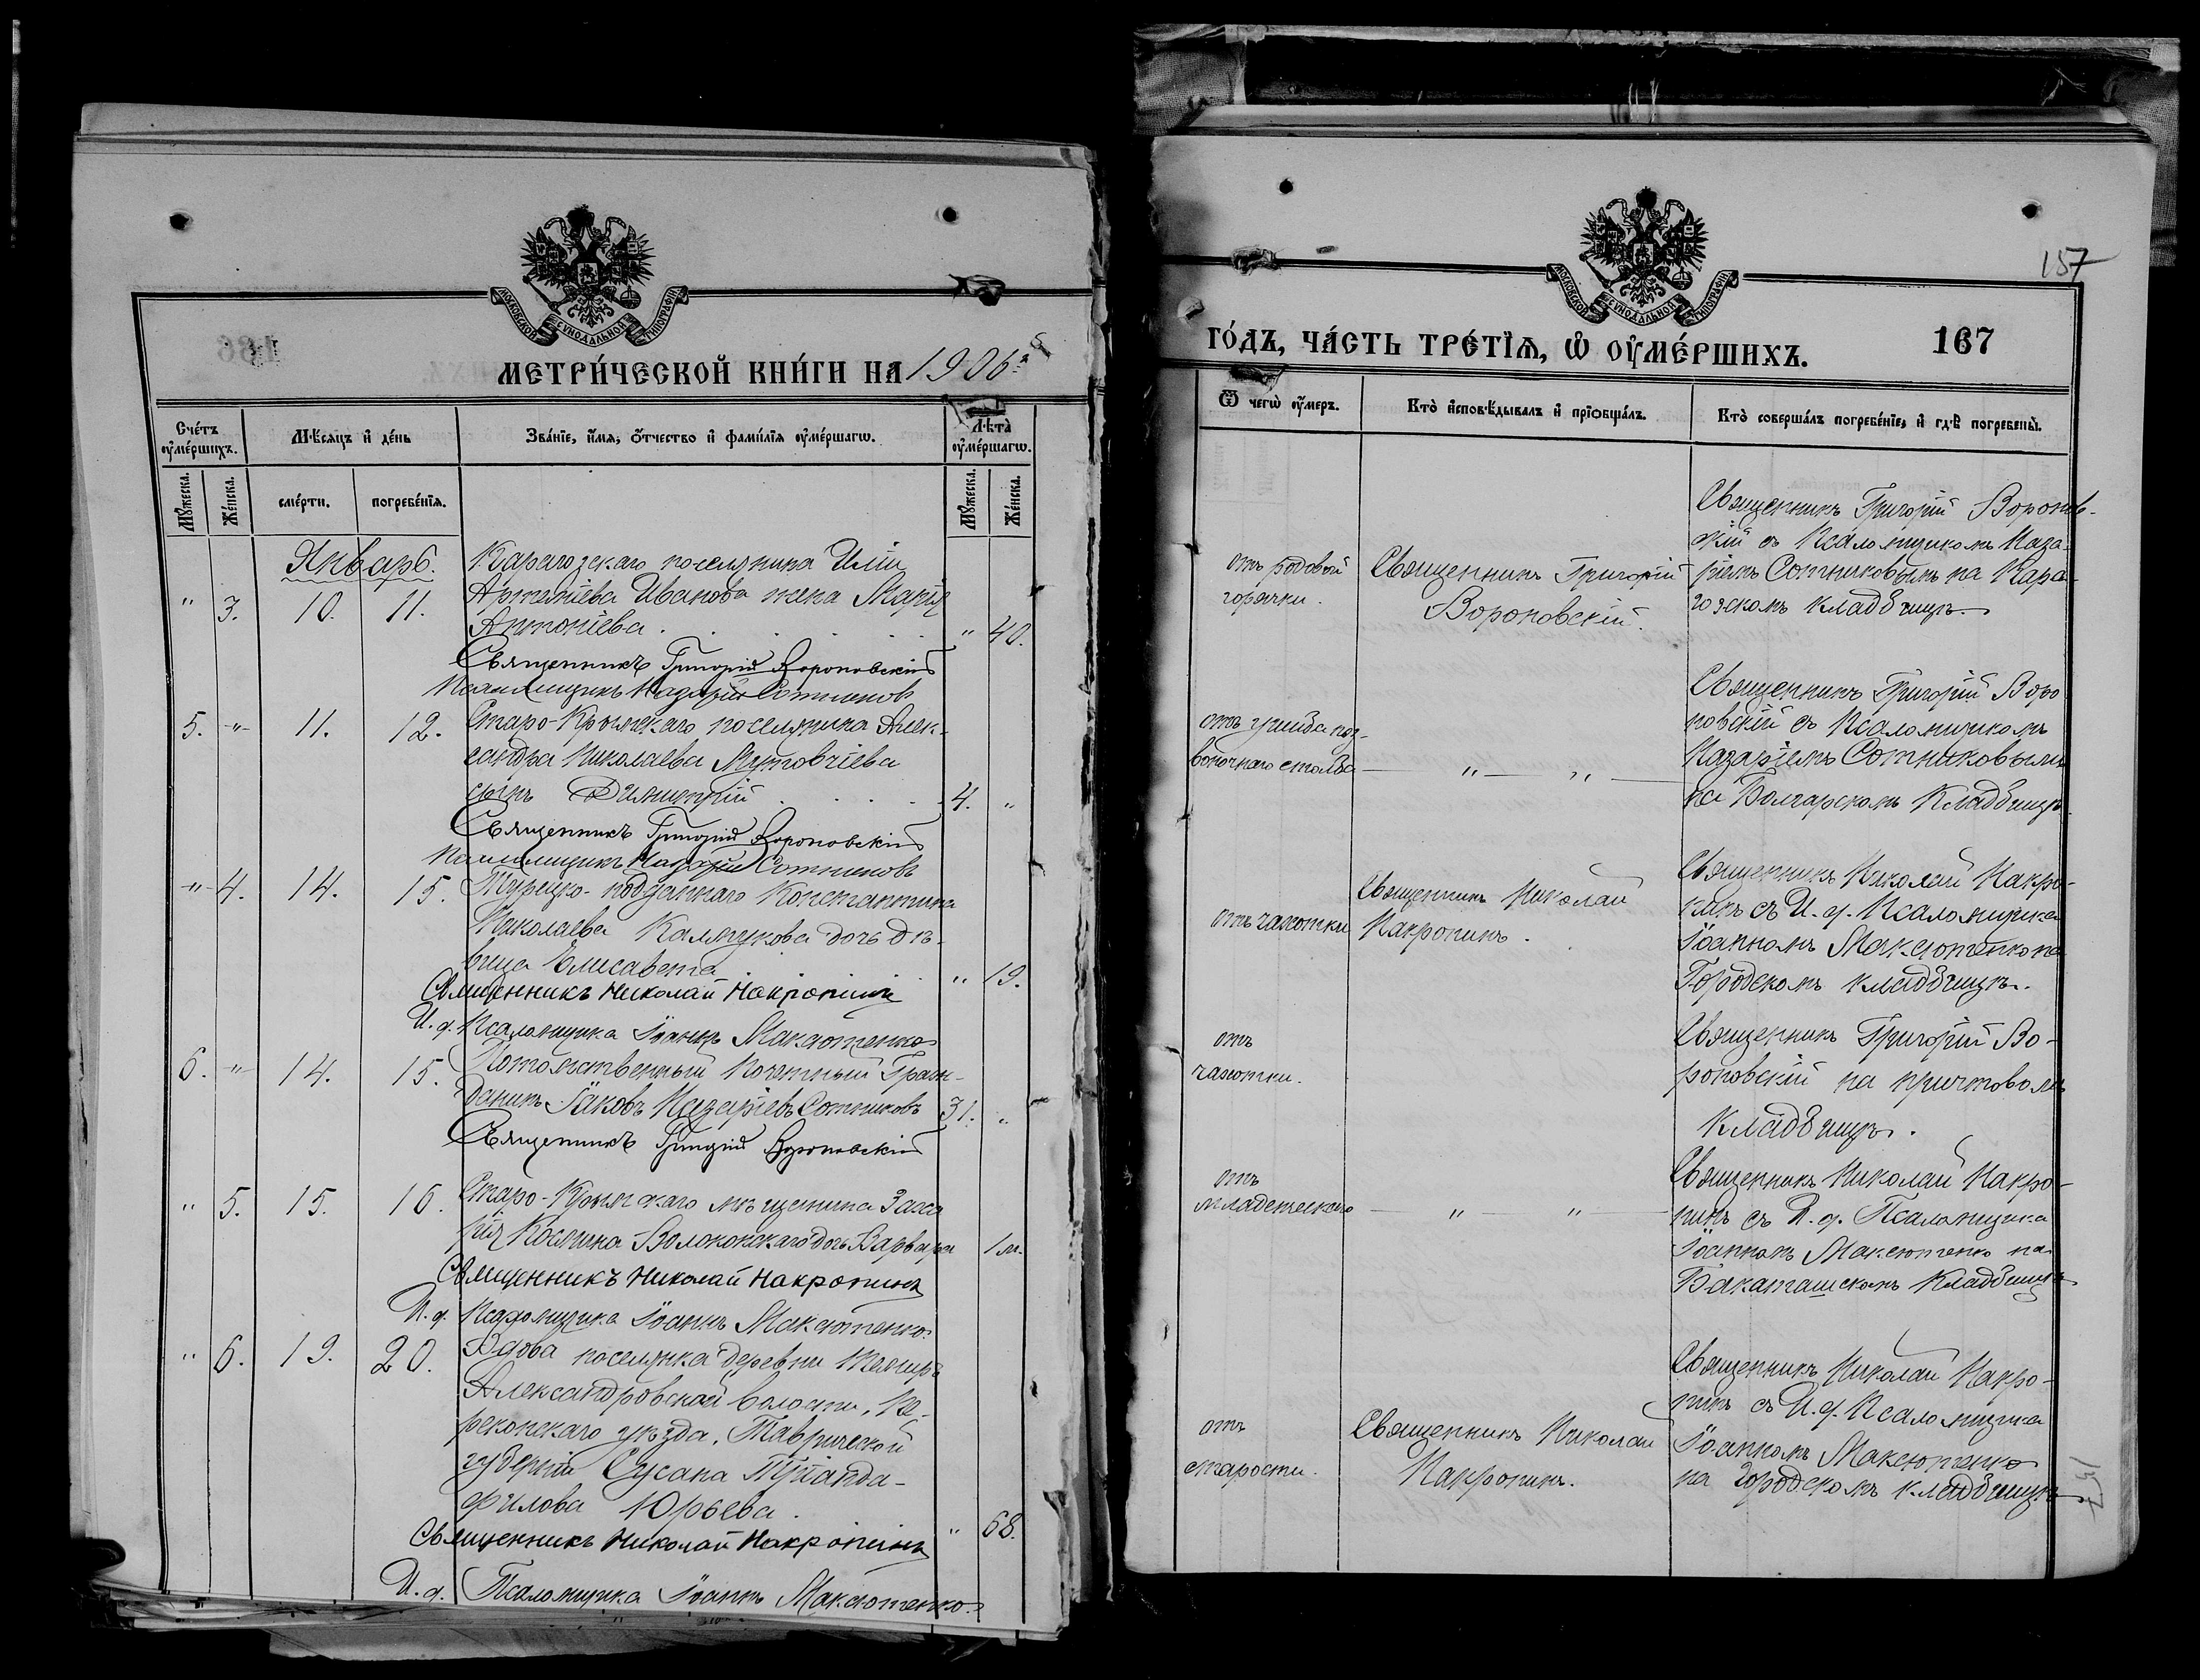 МОСКОВСКОЙ СѴНОДАЛЬНОЙ ТИПОГРАФІИ
МЕТРИ́ЧЕСКОЙ КНИ́ГИ НА 1906й
Сче́тъ ᲂу҆ме́ршихъ.
Мѣ́сяцъ и҆ де́нь
Зва́нїе, и҆́мя, ѻ҆́тчество и҆ фами́лїя ᲂу҆ме́ршагѡ.
Лѣ́та ᲂу҆ме́ршагѡ.
Мꙋжеска.
Же́нска.
сме́рти.
погребе́нїя.
Мꙋжеска.
Же́нска.
Январь.
Карагозскаго поселянина Иліи
" 3. 10. 11. Артемiева Иванова жена Марія
Антоніева . " 40.
Священникъ Григорій Вороновскій
Псаломщикъ Назарій Сотниковъ
5. " 11. 12. Старо-Крымскаго поселянина Алек-
сандра Николаева
сынъ Димитрій 4. "
Священникъ Григорій Вороновскій
Псаломщикъ Назарій Сотниковъ
" 4. 14. 15. Турецко-подданнаго Константина
Николаева дочь дѣ-
вица Елисавета " 19.
Священникъ Николай Накропинъ
И. д. Псаломщика Іоаннъ Максютенко
6. " 14. 15. Потомственный Почетный Граж-
данинъ Іаковъ Назаріевъ Сотниковъ 31. "
Священникъ Григорій Вороновскій
" 5. 15. 16. Старо-Крымскаго мѣщанина Заха
рія Косьмина дочь Варвара 1 м.
Священникъ Николай Накропинъ
И. д. Псаломщика Іоаннъ Максютенко.
" 6. 19. 20. Вдова поселянка деревни
Александровской волости, Пе-
рекопскаго уѣзда, Таврической
губерніи Сусана
филова Юрьева .
Священникъ Николай Накропинъ " 68.
И. д. Псаломщика Іоаннъ Максютенко.
157
МОСКОВСКОЙ СѴНОДАЛЬНОЙ ТИПОГРАФІИ
ГО́ДЪ, ЧА́СТЬ ТРЕ́ТЇѦ, Ѡ҆ ОУ҆МЕ́РШИХЪ.
167
Ѿ чегѡ̀ ᲂу҆́меръ.
Кто̀ и҆сповѣ́дывалъ и҆ прїѻбща́лъ.
Кто̀ соверша́лъ погребе́нїе, и҆ гдѣ̀ погребены̀.
отъ родовой
горячки.
Священникъ Григорій
Вороновскій.
Священникъ Григорій Воронов-
скій съ Псаломщикомъ Наза-
ріемъ Сотниковымъ на Кара-
гозскомъ кладбищѣ.
отъ ушиба
столба
" "
Священникъ Григорій Воро
новскій съ Псаломщикомъ
Назаріемъ Сотниковымъ
на Болгарскомъ Кладбищѣ
отъ чахотки
Священникъ Николай
Накропинъ.
Священникъ Николай Накро-
пинъ съ И. д. Псаломщика
Іоанномъ Максютенко на
Городскомъ кладбищѣ.
отъ
чахотки.
Священникъ Григорій Во-
роновскій на причтовомъ
кладбищѣ.
отъ
младенческаго
" "
Священникъ Николай Накро-
пинъ съ И. д. Псаломщика
Іоанномъ Максютенко на
Бакаташскомъ Кладбищѣ
отъ
старости.
Священникъ Николай
Накропинъ.
Священникъ Николай Накро-
пинъ съ И. д. Псаломщика
Іоанномъ Максютенко
на городскомъ кладбищѣ
157